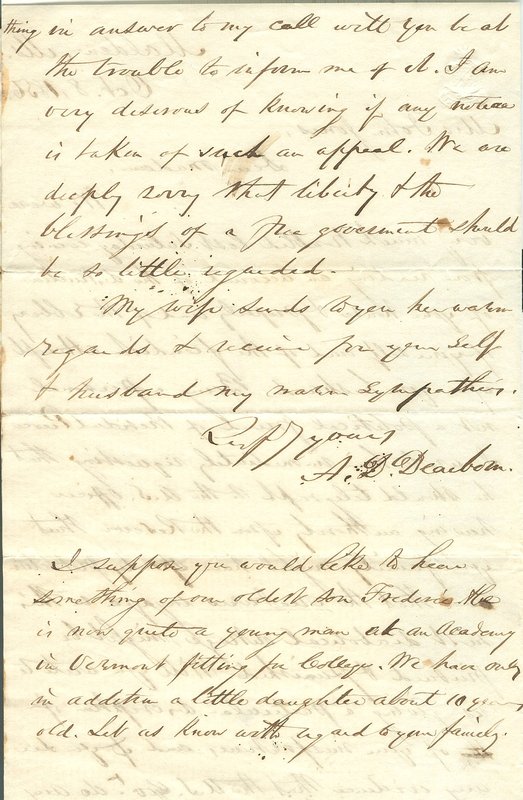 thing in answer to my call will you be at
the trouble to inform me of it. I am
very desirous of knowing if any notice
is taken of such an appeal. We are
deeply sorry that liberty & the
blessings of a free government should
be so little regarded.
My wife sends to you her warm
regards & receive for your self
& husband my warm sympathies.
Respy yours
A. D. Dearborn.
I suppose you would like to hear
something of our oldest son Frederic. He
is now quite a young man at an Academy
in Vermont fitting for College. We have only
in addition a little daughter about 10 years
old. Let us know with regard to your family.